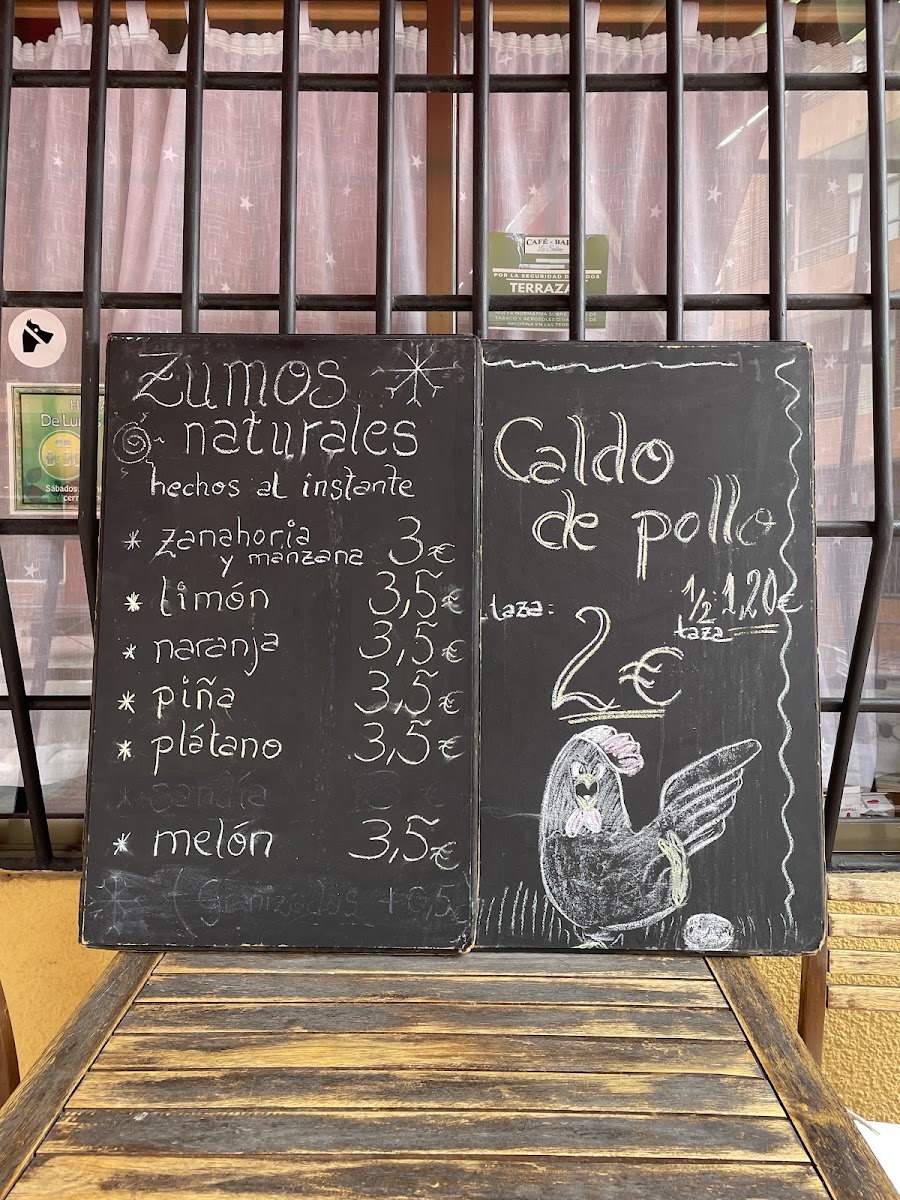 CAFÉ - BAR
POR LA SEGURIDAD DE TODOS
TERRAZA
TABACO Y AEROSOLES
NICOTINA EN LAS
De Lun
Sábados,
cerr
Zumos
naturales
hechos al instante
* zanahoria
y manzana 3€
* limón 3,5€
* naranja 3,5€
* piña 3,5€
* plátano 3,5€
* sandía
* melón 3,5€
Granizados + 0,5
Caldo
de pollo
taza:
2€
1/2 1,20€
taza